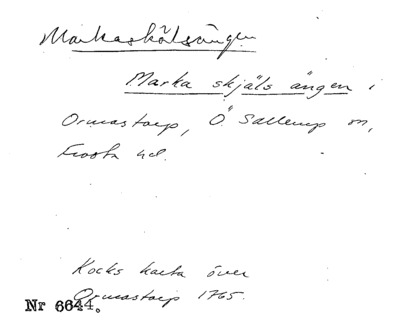 Markaskälsängen
Marka skjäls ängen i
Ormastorp, Ö Sallerup sn,
Frosta hd.
Kocks karta över
Ormastorp 1765.
Nr 6644.